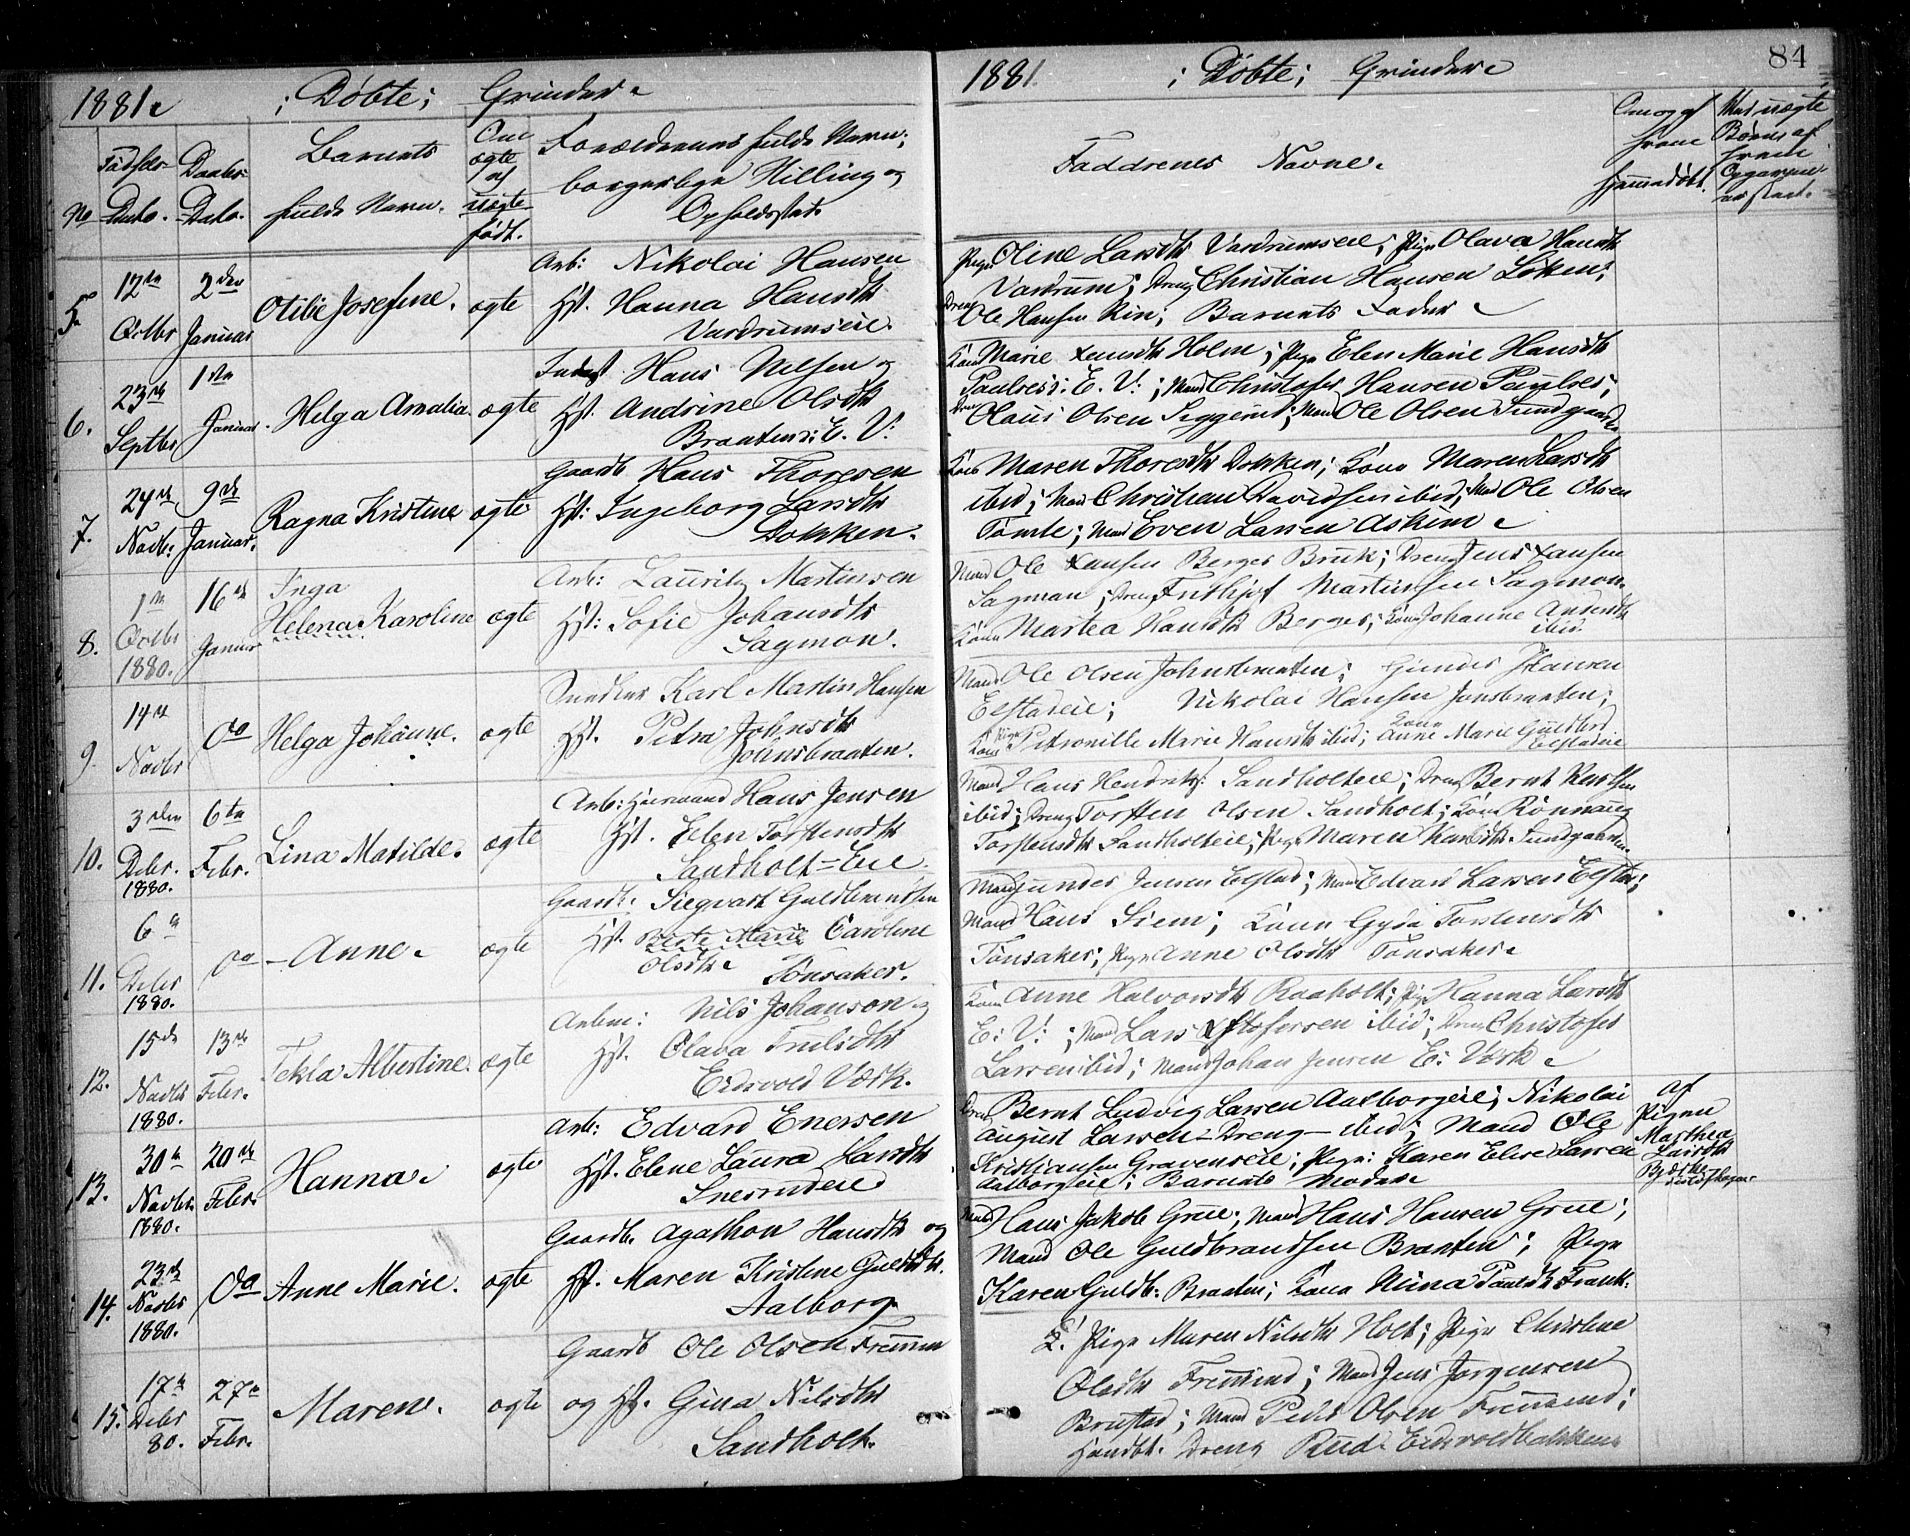 1881.
Døbte;
Qvinder.
No
Fødsels-
Dato.
Daabs-
Dato.
Barnets
fulde Navn.
Om
ægte
el
uægte
født.
Forældrenes fulde Navn,
borgerlige Stilling og
Opholdssted.
5.
12te
Octbr
2den
Januar
Otilie Josefine.
ægte
Arb: Nikolai Hansen
Hst. Hanna Hansdtr
Vardrumseie.
6.
23de
Septbr
1ste
Januar.
Helga Amalia
ægte
Hans Nilsen og
Hst. Andrine Olsdtr
Braaten: E. V:
7.
24de
Novbr.
9de
Januar.
Ragna Kristine
ægte
Gaardb Hans Thoresen
Hst: Ingeborg Larsdtr
Dokken.
8.
1ste
Octbr
1880.
16de
Januar
Inga
Helena Karoline
ægte
Arb: Lauritz Martinsen
Hst: Sofie Johansdtr
Sagmon.
9
14de
Novbr
do
Helga Johanne.
ægte
Snedker Karl Martin Hansen
Hst. Petra Johnsdtr
Johnsbraaten.
10.
3den
Debr.
1880.
6te
Febr.
Lina Matilde.
ægte
Arb: Huusmand Hans Jensen
Hst. Elen Torstensdtr
Sandholt=Eie
11.
6te
Debr
1880.
do
Anne.
ægte
Gaardb. Siegvart Guldbrandsen
Hst. Berte Marie Caroline
Olsdtr Tønsaker.
12.
15de
Novbr
1880.
13de
Febr.
Tekla Albertine.
ægte
Arbm: Nils Johanson og
Hst. Olava Trulsdtr
Eidsvold Værk.
13.
30te
Novbr.
1880.
20de
Febr.
Hanna.
ægte
Arb: Edvard Enersen
Hst. Elene Laura Larsdtr
Snesrudeie
14.
23de
Novbr
1880.
do
Anne Marie.
ægte
Gaardb. Agathon Hansdtr og
Hst. Maren Kristine Guldbdtr.
Aalborg
15.
17de
Debr
80.
27de
Febr.
Maren.
ægte
Gaardb Ole Olsen Fremmin
og Hst. Gina Nilsdtr
Sandholt.
1881.
Døbte;
Qvinder
84
Faddrenes Navne.
Om og af
hvem
hjemmedøbt.
Ved uægte
Børn af
hvem
Pige Oline Larsdtr Vardrumseie; Pige Olava Hansdtr
Vardrum; Dreng Christian Hansen Løken;
Dreng Ole Hansen Rin; Barnets Fader
Kone Marie Holm; Pige Elen Marie Hansdtr
Paulses: E. V:; Mand Christofer Hansen Paulses;
Dreng Olaus Olsen Seggerud; Mand Ole Olsen Sundgaarden
Kone Maren Thoresdtr Dokken; Kone Maren Larsdtr
ibid; Mand Christian Davidsen ibid; Mand Ole Olsen
Tømte; Mand Even Larsen Askim
Mand Ole Hansen Berger Bruk; Dreng Jens Hansen
Sagman; Dreng Frithjof Martinsen Sagmon.
Kone Martea Hansdtr Berger; Kone Johanne Antondtr
ibid.
Mand Ole Olsen Johnsbraaten; Gunder Hansen
Elstadeie; Nikolai Hansen Jonsbraaten;
Pige Petronille Marie Hansdtr ibid; Kone Anne Marie Guldbr
Elstadeie
Mand Hans Hendriks: Sandholteie; Dreng Bernt Karlsen
ibid; Dreng Torsten Olsen Sandholt; Kone Rønnaug
Torstensdtr Sandholteie; Pige Maren Karlsdtr Sundgaarden
Mand Gunder Jensen Elstad; Mand Edvard Larsen Elstad;
Mand Hans Siem; Kone Gyda Torstensdtr
Tønsaker; Pige Anne Olsdtr Tønsaker
Kone Anne Halvorsdtr Raaholt; Pige Hanna Larsdtr
E: V:; Mand Lars Xstofersen ibid; Dreng Christofer
Larsen ibid; Mand Johan Jensen E: Værk
Dreng Bernt Ludvig Larsen Aalborgeie; Nikolai
August Larsen - Dreng - ibid; Mand Ole
Kristiansen Gravenseie; Pige: Karen Elise Larsen
Aalborgeie; Barnets Moder
af
Pigen
Marthea
Larsdtr
Mand Hans Jakob Grue; Mand Hans Hansen Grue;
Mand Ole Guldbrandsen Braaten; Pige
Karen Guldb: Braaten; Kone Nina Paulsdtr Frank:
Pige Maren Nilsdtr Holt; Pige Christine
Olsdtr Fremmind; Mand Jens Jørgensen
Brustad; Mand Peder Olsen Fremmind;
Handbt. Dreng Rud. Eidsvoldbakken